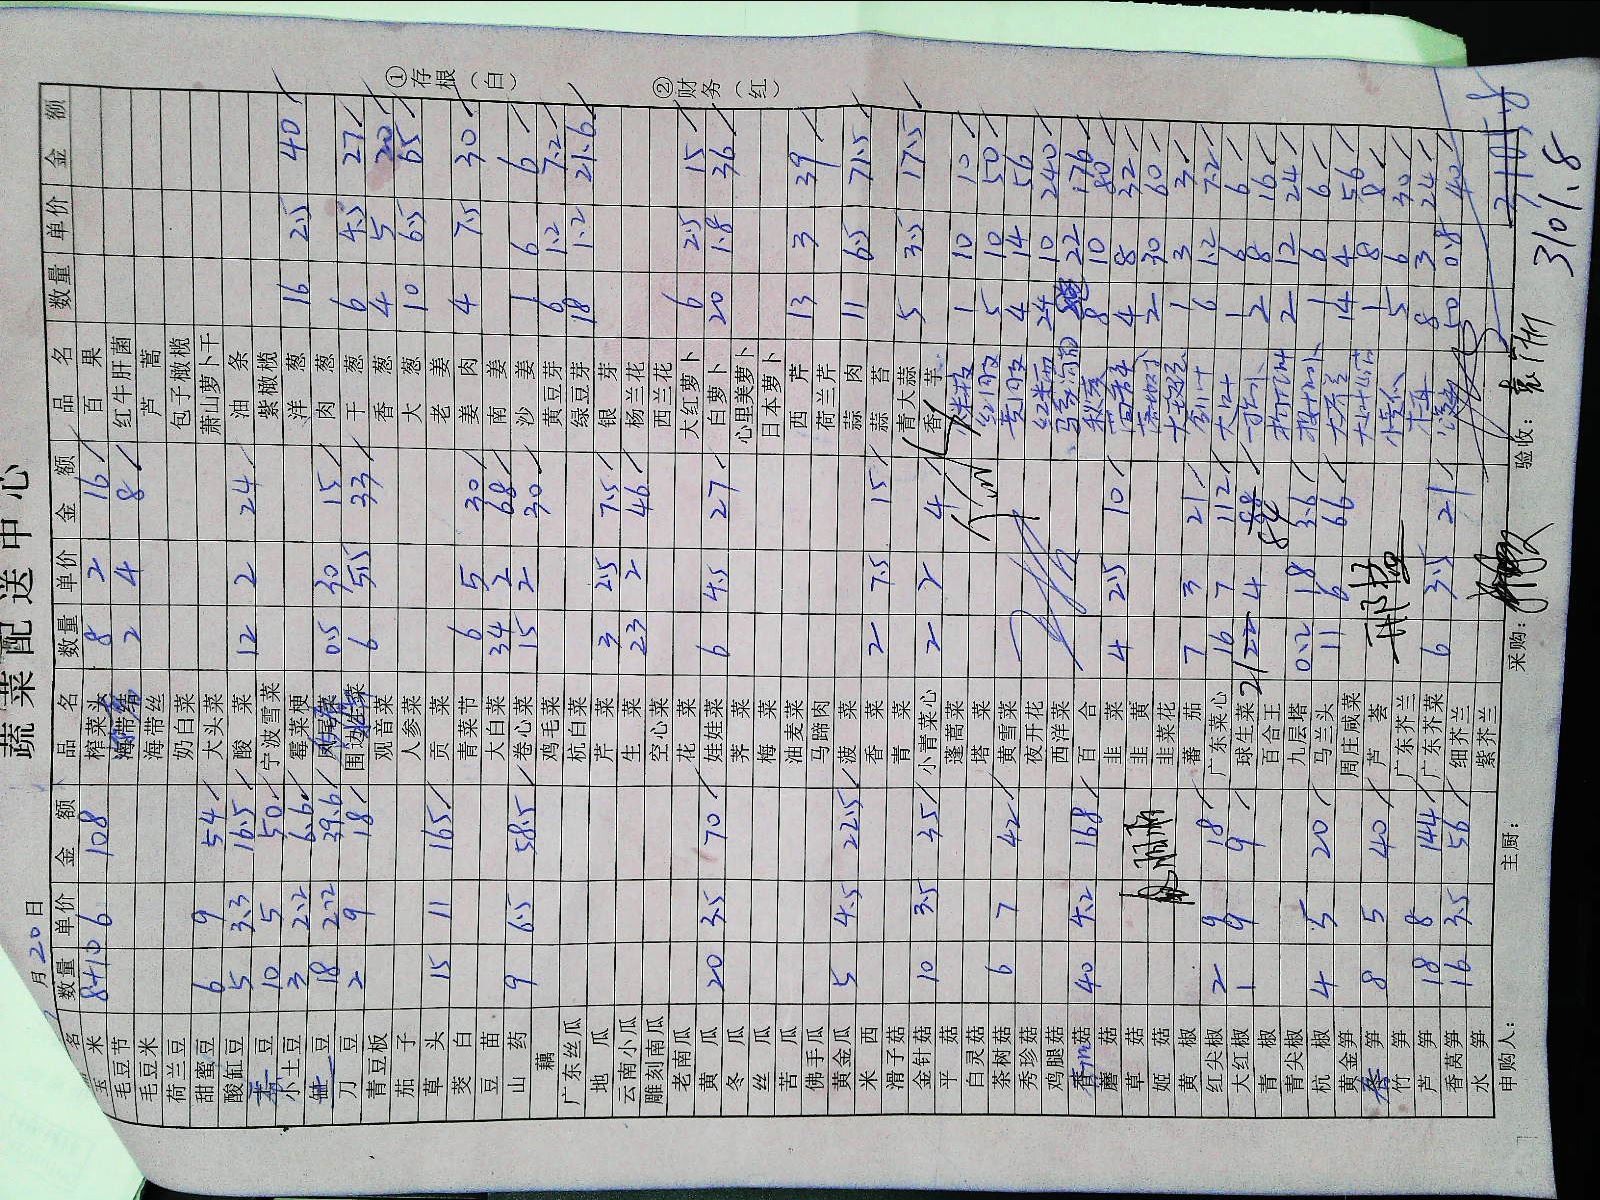 蔬菜配送中心
月20日
名 数量 单价 金额 品名 数量 单价 金额 品名 数量 单价 金额
玉米 8+10 6 108 榨菜头 8 2 16 百果
毛豆节 海带结 2 4 8 红牛肝菌
毛豆米 海带丝 芦蒿
荷兰豆 奶白菜 包子橄榄
甜蜜豆 6 9 54 大头菜 萧山萝卜干
酸缸豆 5 3.3 16.5 酸菜 12 2 24 油条
豆 10 5 50 宁波雪菜 紫橄榄
小土豆 3 2.2 6.6 霉菜梗 洋葱 16 2.5 40
豆 18 2.2 39.6 凤尾菜 0.5 30 15 肉葱
刀豆 2 9 18 围边菜 6 5.5 33 干葱 6 4.5 27
青豆板 观音菜 香葱 4 5 20
茄子 人参菜 大葱 10 6.5 65
草头 15 11 165 贡菜 老姜
茭白 青菜节 6 5 30 姜肉 4 7.5 30
豆苗 大白菜 34 2 68 南姜
山药 9 6.5 58.5 卷心菜 15 2 30 沙姜 1 6 6
藕 鸡毛菜 黄豆芽 6 1.2 7.2
广东丝瓜 杭白菜 绿豆芽 18 1.2 21.6
地瓜 芹菜 3 2.5 7.5 银芽
云南小瓜 生菜 23 2 46 杨兰花
雕刻南瓜 空心菜 西兰花
老南瓜 花菜 大红萝卜 6 2.5 15
黄瓜 20 3.5 70 娃娃菜 6 4.5 27 白萝卜 20 1.8 36
冬瓜 荠菜 心里美萝卜
丝瓜 梅菜 日本萝卜
苦瓜 油麦菜 西芹 13 3 39
佛手瓜 马蹄肉 荷兰芹
黄金瓜 5 4.5 22.5 菠菜 蒜肉 11 6.5 71.5
米西 香菜 2 7.5 15 蒜苔
滑子菇 青菜 青大蒜 5 3.5 17.5
金针菇 10 3.5 35 小青菜心 2 2 4 香芋
平菇 蓬蒿菜 1 10 10
白灵菇 塔菜 5 10 50
茶树菇 6 7 42 黄雪菜 4 14 56
秀珍菇 夜开花 24 10 240
鸡腿菇 西洋菜 22 176
香菇 40 4.2 168 百合 8 10 80
蘑菇 韭菜 4 2.5 10 4 8 32
草菇 韭黄 2 30 60
姬菇 韭菜花 1 3 3
黄椒 蕃茄 7 3 21 6 1.2 7.2
红尖椒 2 9 18 广东菜心 16 7 112 1 6 6
大红椒 1 9 9 球生菜 21 4 84 2 8 16
青椒 百合王 2 12 24
青尖椒 九层塔 0.2 18 3.6 1 6 6
杭椒 4 5 20 马兰头 11 6 66 14 4 56
黄金笋 周庄咸菜 1 8 8
笋 8 5 40 芦荟 5 6 30
竹笋 广东芥兰 木耳 8 3 24
芦笋 18 8 144 广东芥菜 6 3.5 21 50 0.8 40
香莴笋 16 3.5 56 细芥兰
水笋 紫芥兰
申购人： 主厨： 采购： 验收：
3101.8
①存根（白）
②财务（红）